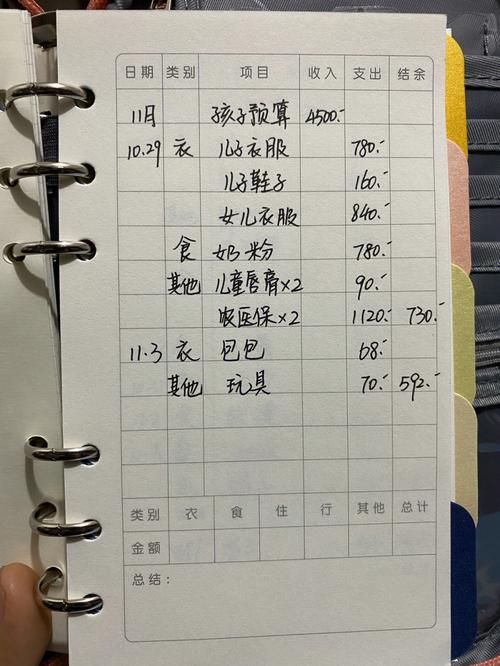 日期 类别 项目 收入 支出 结余
11月 孩子预算 4500.-
10.29 衣 儿子衣服 780.-
儿子鞋子 160.-
女儿衣服 840.-
食 奶粉 780.-
其他 儿童唇膏×2 90.-
农医保×2 1120.- 730.-
11.3 衣 包包 68.-
其他 玩具 70.- 592.-
类别 衣 食 住 行 其他 总计
金额
总结：